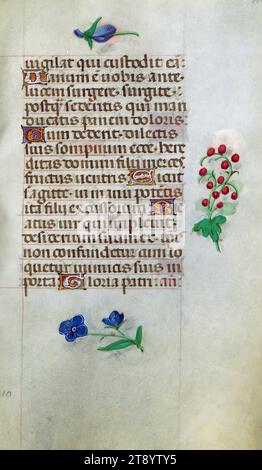 uigilat qui custodit eã.
Uanum ẽ uobis ante
lucem surgere surgite
postq̃ sederitis qui man
ducatis panem doloris.
Cum dederit dilectis
suis sompnum ecce here
ditas domini filii mer ces
fructus uentris Sicut
sagitte in manu potẽtis
ita filii excussorum Be
atus uir qui impleuit
desiderium suum ex ĩpis
non confundetur cum lo
quetur inimicis suis in
porta Gloria patri
10
alamy
Image ID: 2T81YT5
www.alamy.com